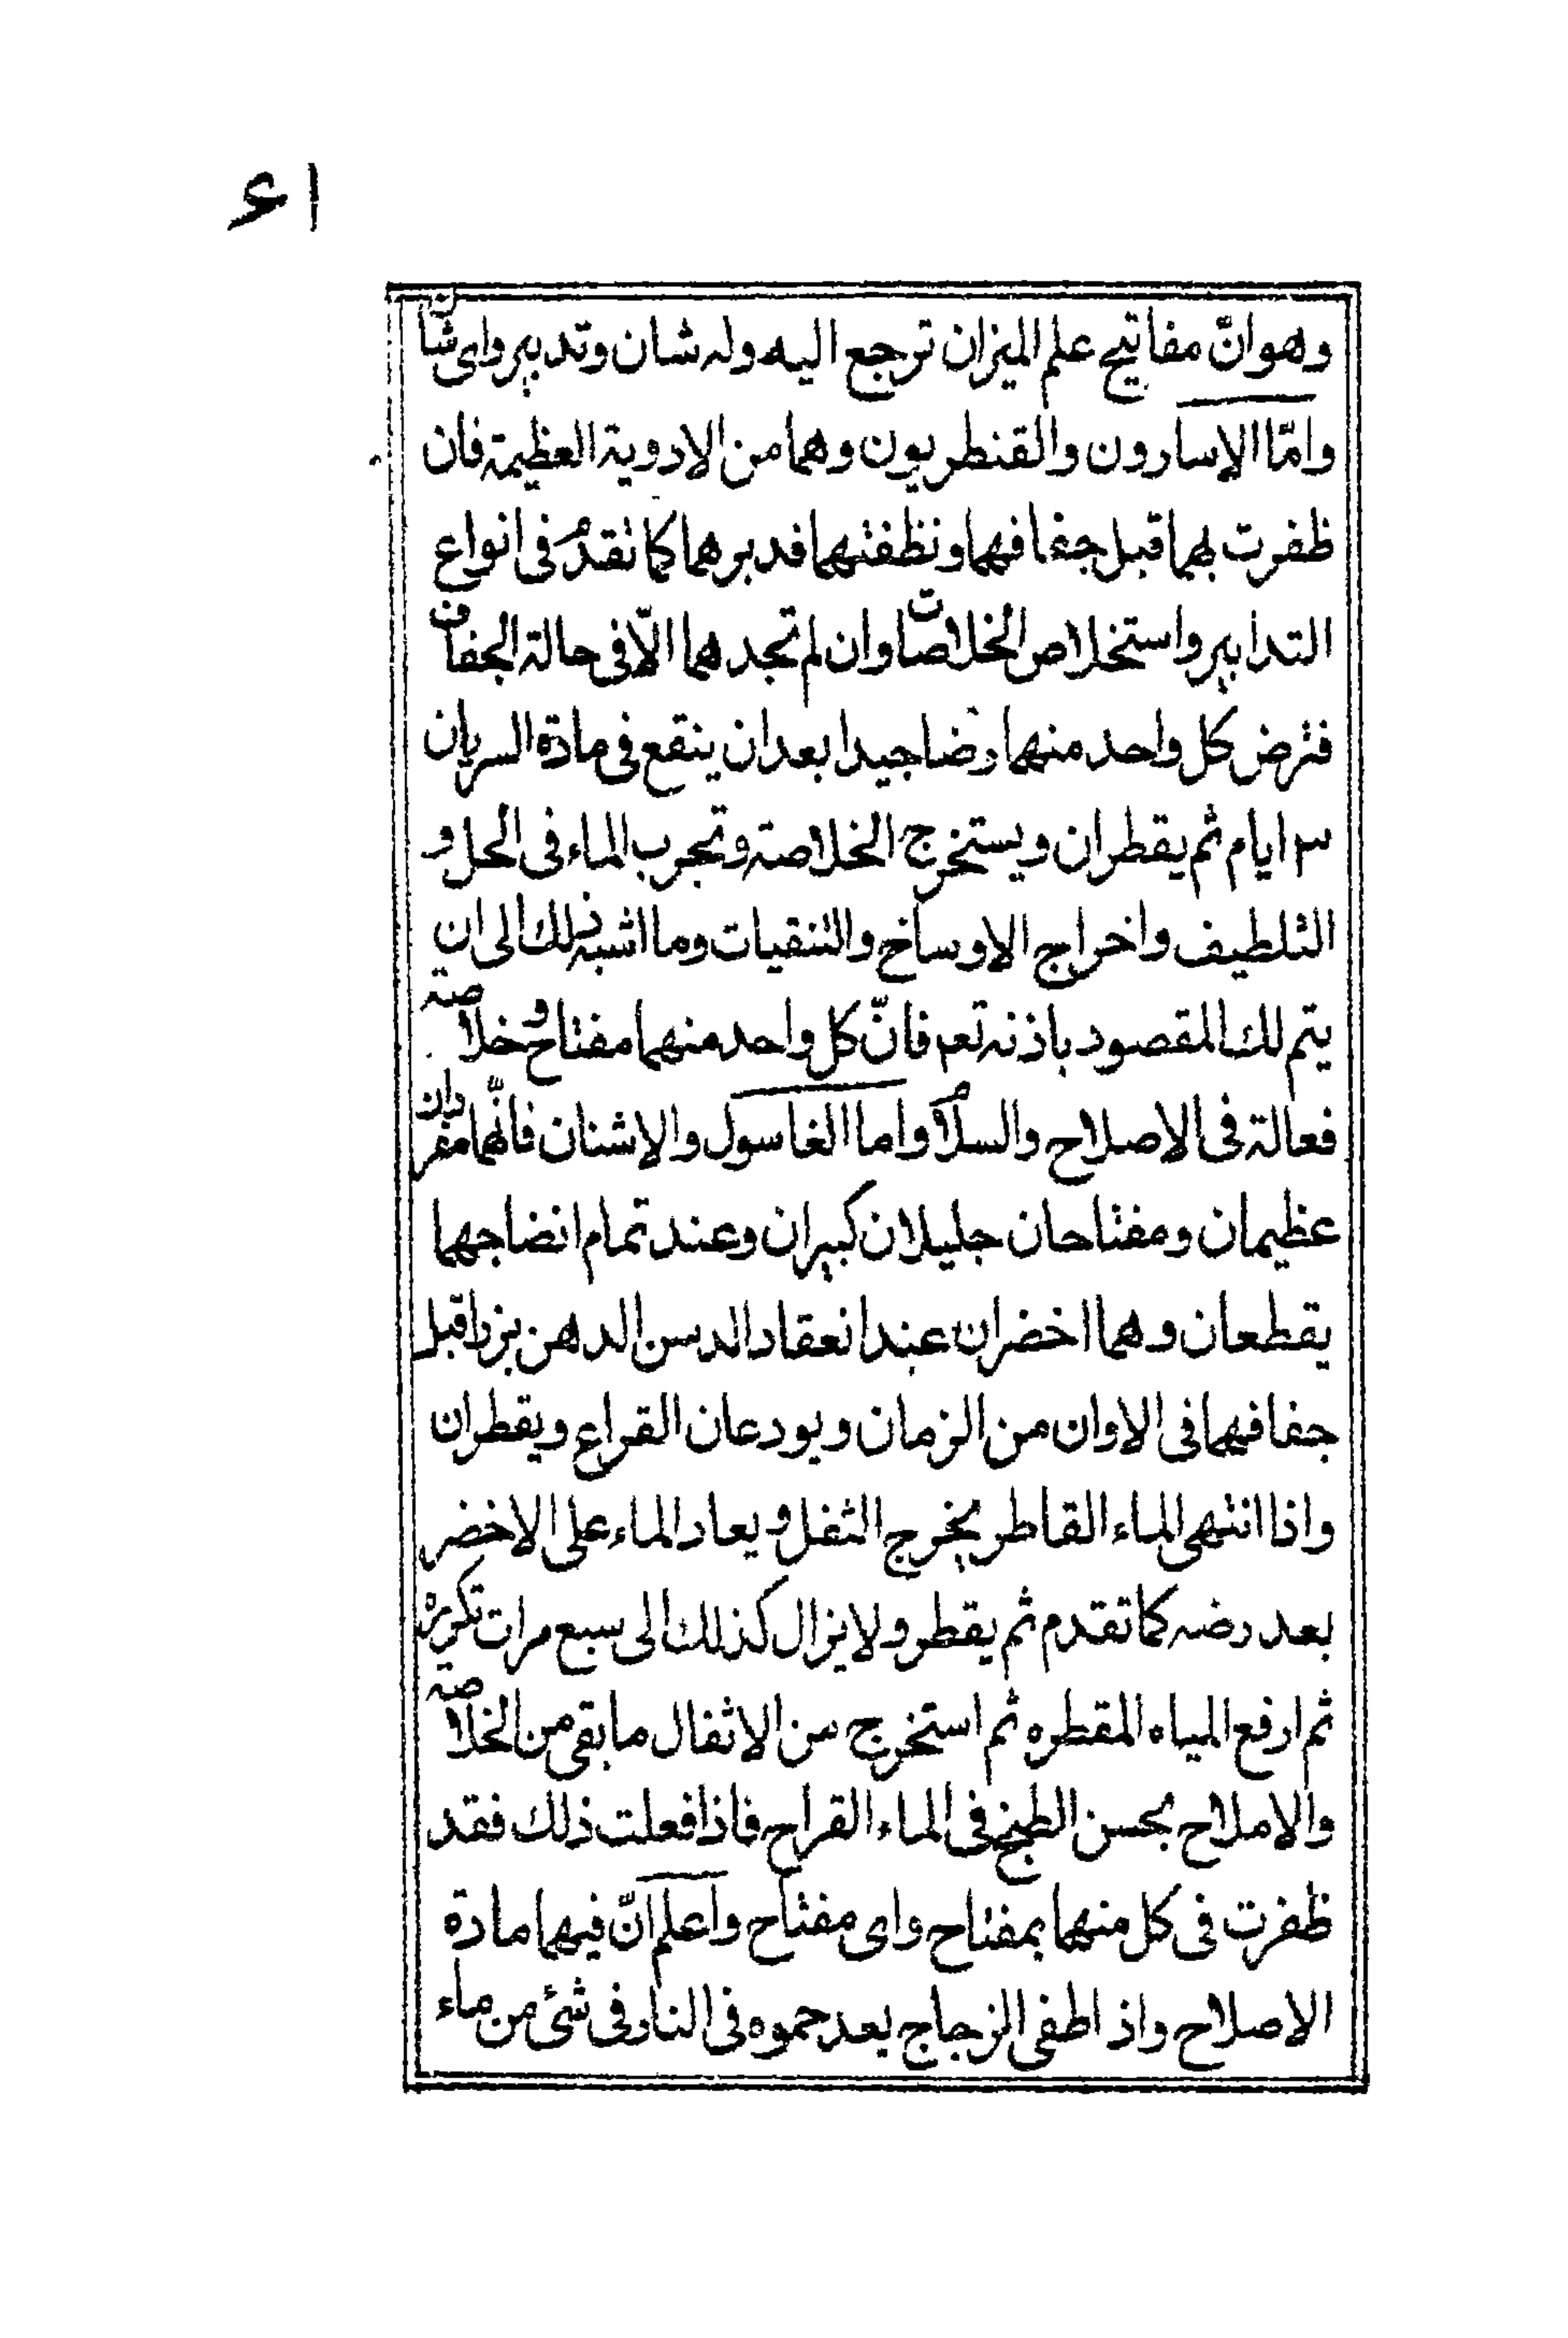 ١٤
وهو انّ مفاتيح علم الميزان ترجع اليه وله شان وتدبير واى شان
وامّا الاسارون والقنطريون وهما من الادوية العظيمة فان
ظفرت بهما قبل جفافهما ونظفتهما فدبرهما كما تقدم فى انواع
التدابير واستخلاص الخلاصات وان لم تجدهما الّا فى حالة الجفاف
فترض كل واحد منهما رضا جيدا بعد ان ينقع فى مادة السريان
٣ ايام ثم يقطران ويستخرج الخلاصة وتجرب الماء فى الحل و
التلطيف واخراج الاوساخ والتنقيات وما اشبه ذلك الى ان
يتم لك المقصود باذنه تعم فانّ كل واحد منهما مفتاح وخلاصة
فعالة فى الاصلاح والسلام واما الغاسول والاشنان فانّهما مفردان
عظيمان ومفتاحان جليلان كبيران وعند تمام انضاجهما
يقطعان وهما اخضران عند انعقاد الدسن الدهن بزرا قبل
جفافهما فى الاوان من الزمان ويودعان القراع ويقطران
واذا انتهى الماء القاطر يخرج الثفل ويعاد الماء على الاخضر
بعد رضه كما تقدم ثم يقطر ولا يزال كذلك الى سبع مرات تكريره
ثم ارفع المياه المقطره ثم استخرج من الاثفال ما بقى من الخلاصة
والاملاح بحسن الطبخ فى الماء القراح فاذا فعلت ذلك فقد
ظفرت فى كل منهما بمفتاح واى مفتاح واعلم انّ فيهما مادة
الاصلاح واذ اطفى الزجاج بعد حموه فى النار فى شئ من ماء